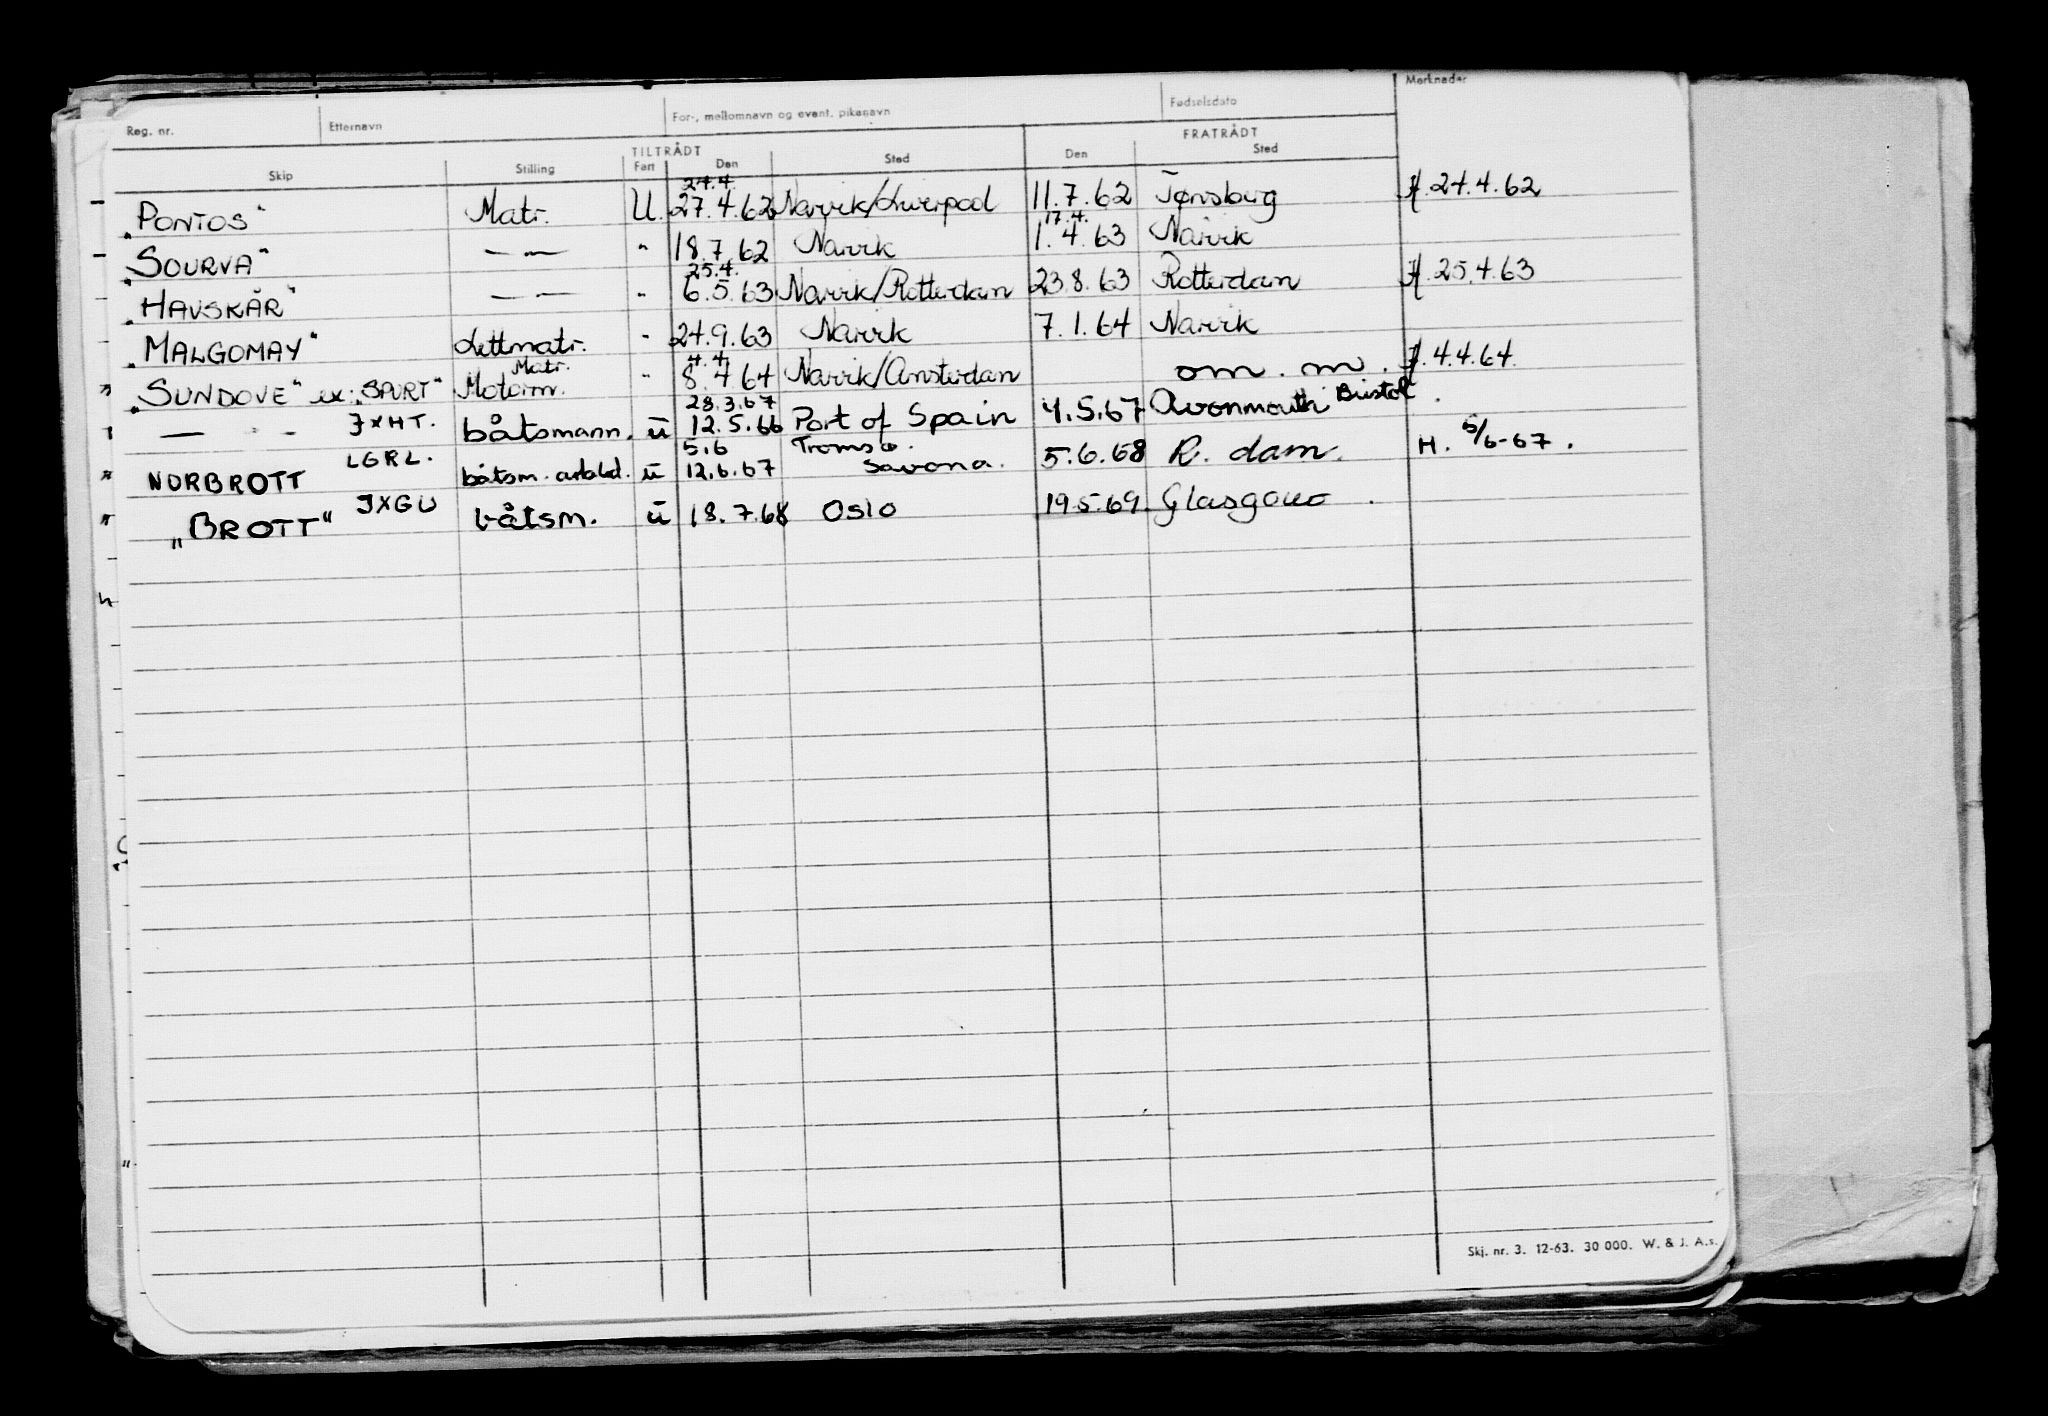 Reg. nr. Etternavn For-, mellomnavn og event. pikenavn Fødselsdato Merknader
TILTRÅDT FRATRÅDT
Skip Stilling Fart Den Sted Den Sted
24.4.
„PONTOS“ Matr. U. 27.4.62 Narvik/Liverpool 11.7.62 Tønsberg H. 24.4.62
17.4.
„SOURVA“ — — " 18.7.62 Narvik 1.4.63 Narvik
25.4.
„HAVSKÅR“ — — " 6.5.63 Narvik/Rotterdam 23.8.63 Rotterdam H. 25.4.63
„MALGOMAY“ Lettmatr. " 24.9.63 Narvik 7.1.64 Narvik
Matr. 4.4.
„SUNDOVE“ ex: „SPURT“ Motorm. " 8.4.64 Narvik/Amsterdam om. m. H. 4.4.64.
28.3.67
— " — JXHT. båtsmann. u 12.5.66 Port of Spain 4.5.67 Avonmouth Bristol.
5.6 Tromsø.
NORBROTT LGRL. båtsm. u 12.6.67 Savona. 5.6.68 R. dam. H. 5/6-67.
„BROTT“ JXGU båtsm. u 18.7.68 Oslo 19.5.69. Glasgow.
Skj. nr. 3. 12-63. 30 000. W. & J. A.s.